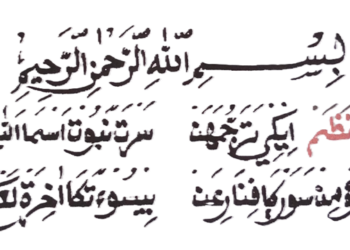 بِسْمِ اللّٰهِ الرَّحْمٰنِ الرَّحِيْمِ
نظم اِيكي ترجمهن سرت نبوت اسما
سوركا فنارعن بيسوء تكا اخرة